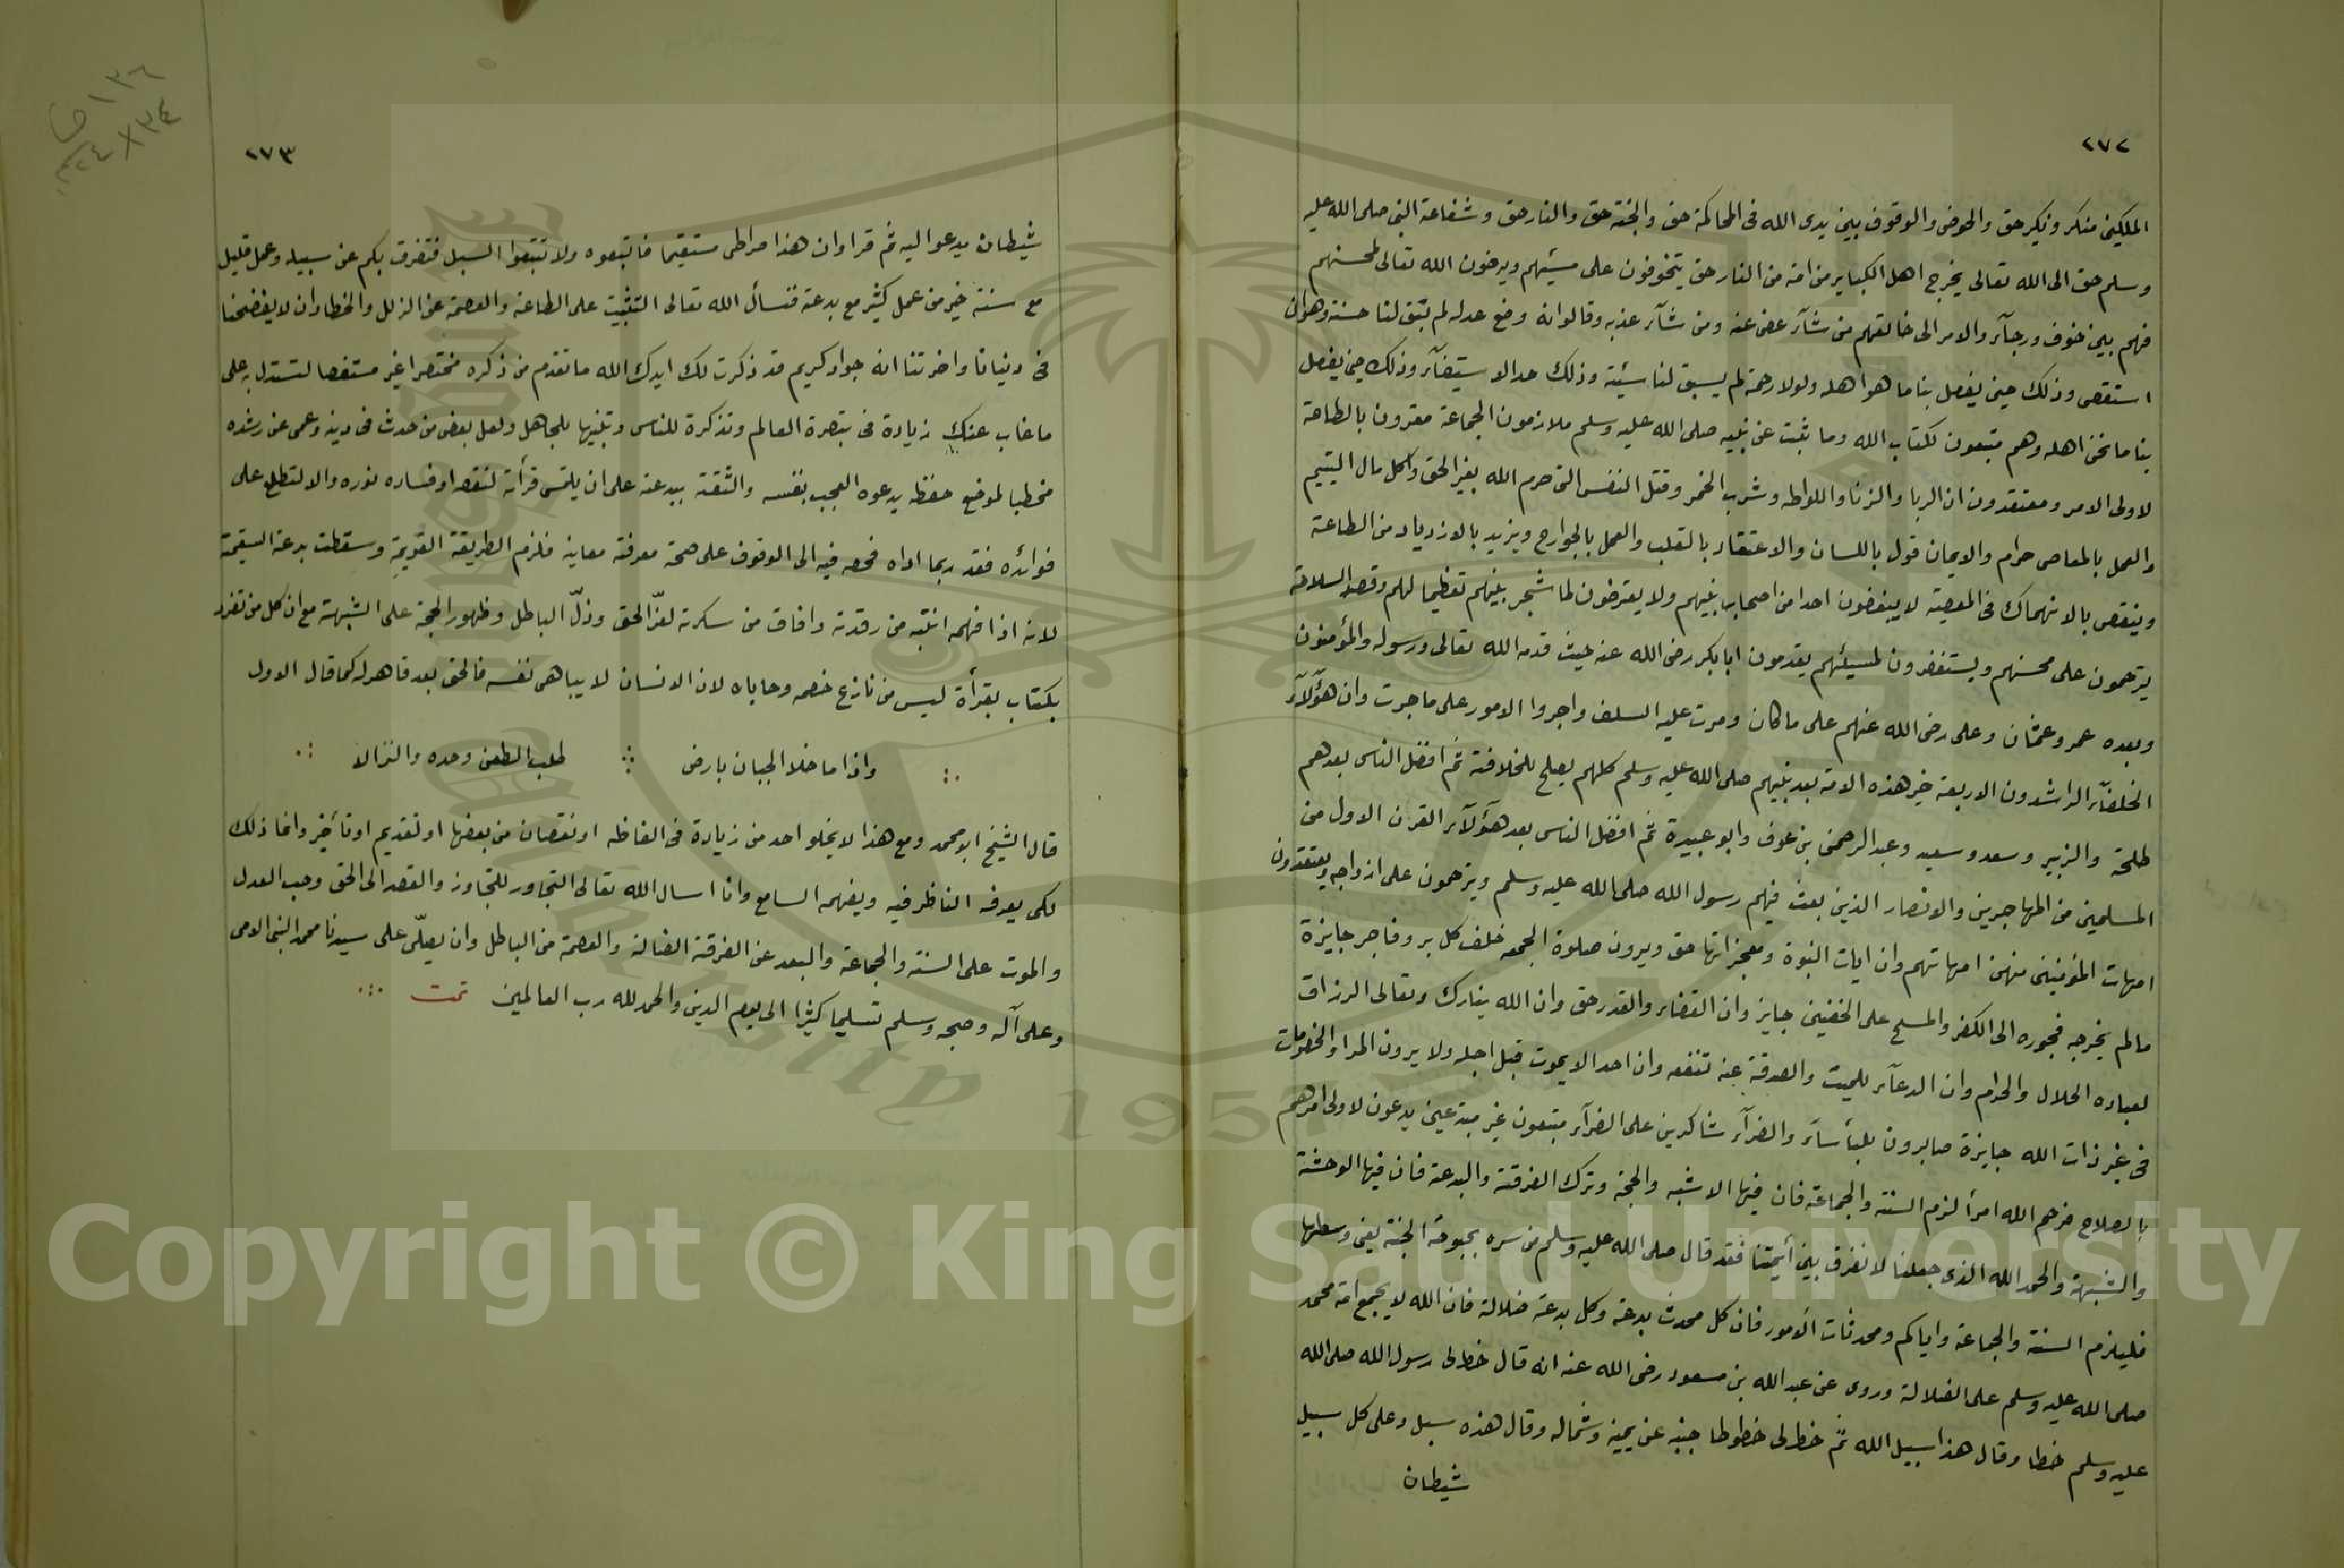 ٢٧٢
الملكين منكر ونكير حق والحوض والوقوف بين يدى الله فى المحاكمة حق والجنة حق والنار حق وشفاعة النبى صلى الله عليه
وسلم حق الى الله تعالى يخرج اهل الكباير من امة من النار حق يتخوفون على مسيئهم ويرجون الله تعالى لمحسنهم
فهم بين خوف ورجآء والامر الى خالقهم من شآء عفى عنه ومن شآء عذبه وقالوا انه وضع عدله لم تبق لنا حسنة وهو ان
استقصى وذلك حين يفصل بنا ما هو اهله ولولا رحمة لم يسبق لنا سيئة وذلك حد الاستيفآء وذلك حين يفصل
بنا ما نحن اهله وهم متبعون لكتاب الله وما ثبت عن نبيه صلى الله عليه وسلم ملازمون الجماعة مقرون بالطاعة
لاولى الامر ومعتقدون ان الربا والزنا واللواطه وشرب الخمر وقتل النفس التى حرم الله بغير الحق واكل مال اليتيم
والعمل بالمعاصى حرام والايمان قول باللسان والاعتقاد بالقلب والعمل بالجوارح ويزيد بالازدياد من الطاعة
وينقص بالانهماك فى المعصية لا يبغضون احدا من اصحاب نبيهم ولا يعترضون لما شجر بينهم تعظيما لهم وقصد السلامة
يترحمون على محسنهم ويستغفرون لمسيئهم يقدمون ابا بكر رضى الله عنه حيث قدمه الله تعالى ورسوله والمؤمنون
وبعده عمر وعثمان وعلى رضى الله عنهم على ما كان ومرت عليه السلف واجروا الامور على ما جرت وان هؤلآء
الخلفآء الراشدون الاربعة خير هذه الامة بعد نبيهم صلى الله عليه وسلم كلهم يصلح للخلافة ثم افضل الناس بعدهم
طلحة والزبير وسعد وسعيد وعبد الرحمن بن عوف وابو عبيدة ثم افضل الناس بعد هؤلآء القرن الاول من
المسلمين من المهاجرين والانصار الذين بعث فيهم رسول الله صلى الله عليه وسلم ويترحمون على ازواجه ويعتقدون
امهات المؤمنين منهن امهاتهم وان ايات النبوة ومعجزاتها حق ويرون صلوة الجمعه خلف كل بر وفاجر جايزة
مالم يخرجه فجوره الى الكفر والمسح على الخفين جايز وان القضاء والقدر حق وان الله يتبارك وتعالى الرزاق
لعباده الحلال والحرام وان الدعآء للميت والصدقة عنه تنفعه وان احدا لا يموت قبل اجله ولا يرون المرا والخصومات
فى غير ذات الله جايزة صابرون بالبأسآء والضرآء شاكرين على الضرآء متبعون غير مبتدعين يدعون لاولى امرهم
بالصلاح فرحم الله امرأ لزم السنة والجماعة فان فيها الاشبه والحجة وترك الفرقة والبدعة فان فيها الوحشة
والشبهة والحمد الله الذى جعلنا لا نفرق بين أيمتنا فقد قال صلى الله عليه وسلم من سره بحبوحة الجنة يعنى وسطها
فليلزم السنة والجماعة واياكم ومحدثات الأمور فان كل محدث بدعة وكل بدعة ضلالة فان الله لا يجمع امة محمد
صلى الله عليه وسلم على الضلالة وروى عن عبد الله بن مسعود رضى الله عنه انه قال خط لى رسول الله صلى الله
عليه وسلم خطا وقال هذا سبيل الله ثم خط لى خطوطا جنبه عن يمينه وشماله وقال هذه سبل وعلى كل سبيل
شيطان
٢٧٣
شيطان يدعو اليه ثم قرا وان هذا صراطى مستقيما فاتبعوه ولا تتبعوا السبل فتفرق بكم عن سبيله وعمل قليل
مع سنة خير من عمل كثير مع بدعة فنسأل الله تعالى التثبيت على الطاعة والعصمة عن الزلل والخطا وان لا يفضحنا
فى دنيانا واخرتنا انه جواد كريم قد ذكرت لك ايدك الله ما تقدم من ذكره مختصرا غير مستقصا لتستدل به على
ما غاب عنك زيادة فى تبصرة العالم وتذكرة للناس وتنبيها للجاهل ولعل بعض من حدث فى دينه وعمى عن رشده
مخطيا لموضع حفظه يدعوه العجب بنفسه والثقة ببدعته على ان يلتمس قرأته لنقصه او فساده نوره والا لتطلع على
فوائده فقد ربما اداه فحصه فيه الى الوقوف على صحة معرفة معاينه فلزم الطريقة القويمة وسقطت بدعة السقيمة
لانه اذا فهمه انتبه من رقدته وافاق من سكرته لعز الحق وذل الباطل وظهور الحجة على الشبهة مع ان كل من تفرد
بكتاب بقرأة ليس من نازع خصمه وحاباه لان الانسان لا يباهى نفسه فالحق بعد قاهر له كما قال الاول
واذا ما خلا الجبان بارض طلب الطعن وحده والنزالا
قال الشيخ ابو محمد ومع هذا لا يخلو احد من زيادة فى الفاظه او نقصان من بعضها او تقديم او تأخير وانما ذلك
لكى يعرفه الناظر فيه ويفهمه السامع وانا اسال الله تعالى التجاور للتجاوز والقصد الى الحق وحب العدل
والموت على السنة والجماعة والبعد عن الفرقة الضالة والعصمة من الباطل وان يصلّى على سيدنا محمد النبى الامى
وعلى آله وصحبه وسلم تسليما كثيرا الى يوم الدين والحمد لله رب العالمين تمت
Copyright © King Saud University
1957